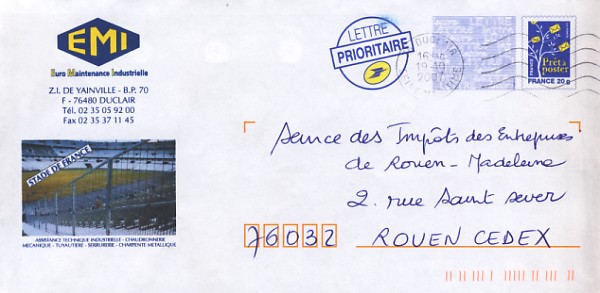 EMI
Euro Maintenance Industrielle
Z.I. DE YAINVILLE - B.P. 70
F - 76480 DUCLAIR
Tél. 02 35 05 92 00
Fax 02 35 37 11 45
STADE DE FRANCE
ASSISTANCE TECHNIQUE INDUSTRIELLE - CHAUDRONNERIE
MECANIQUE - TUYAUTERIE - SERRURERIE - CHARPENTE METALLIQUE
LETTRE
PRIORITAIRE
19-10
FRANCE
Prêt à
poster
FRANCE 20g
Service des Impôts des Entreprises
de Rouen-Madeleine
2. rue Saint sever
76032 ROUEN CEDEX